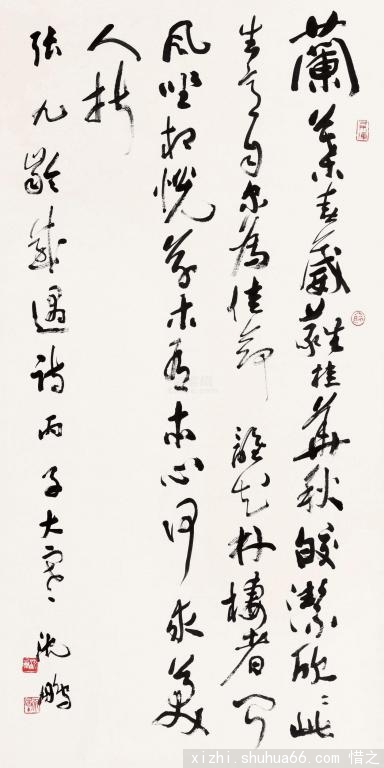 蘭葉春葳蕤桂華秋皎潔欣〻此
生意自尔為佳節誰知林棲者聞
風坐相悦草木有本心何求美
人折
張九齡感遇詩丙子大寒沈鵬
xizhi.shuhua66.com 惜之